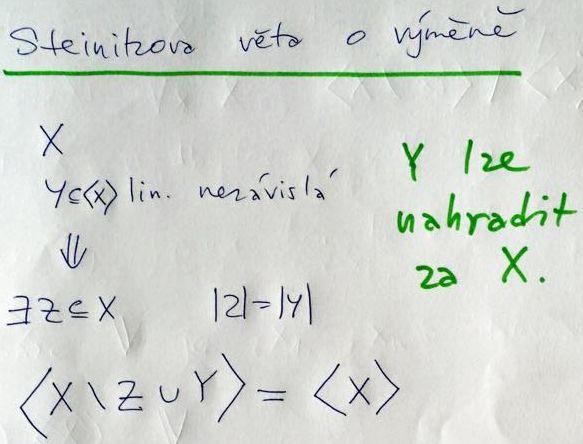 Steinitzova věta o výměně
X
Y⊆⟨X⟩ lin. nezávislá
⇓
∃Z⊆X |Z|=|Y|
⟨X∖Z∪Y⟩=⟨X⟩
Y lze
nahradit
za X.